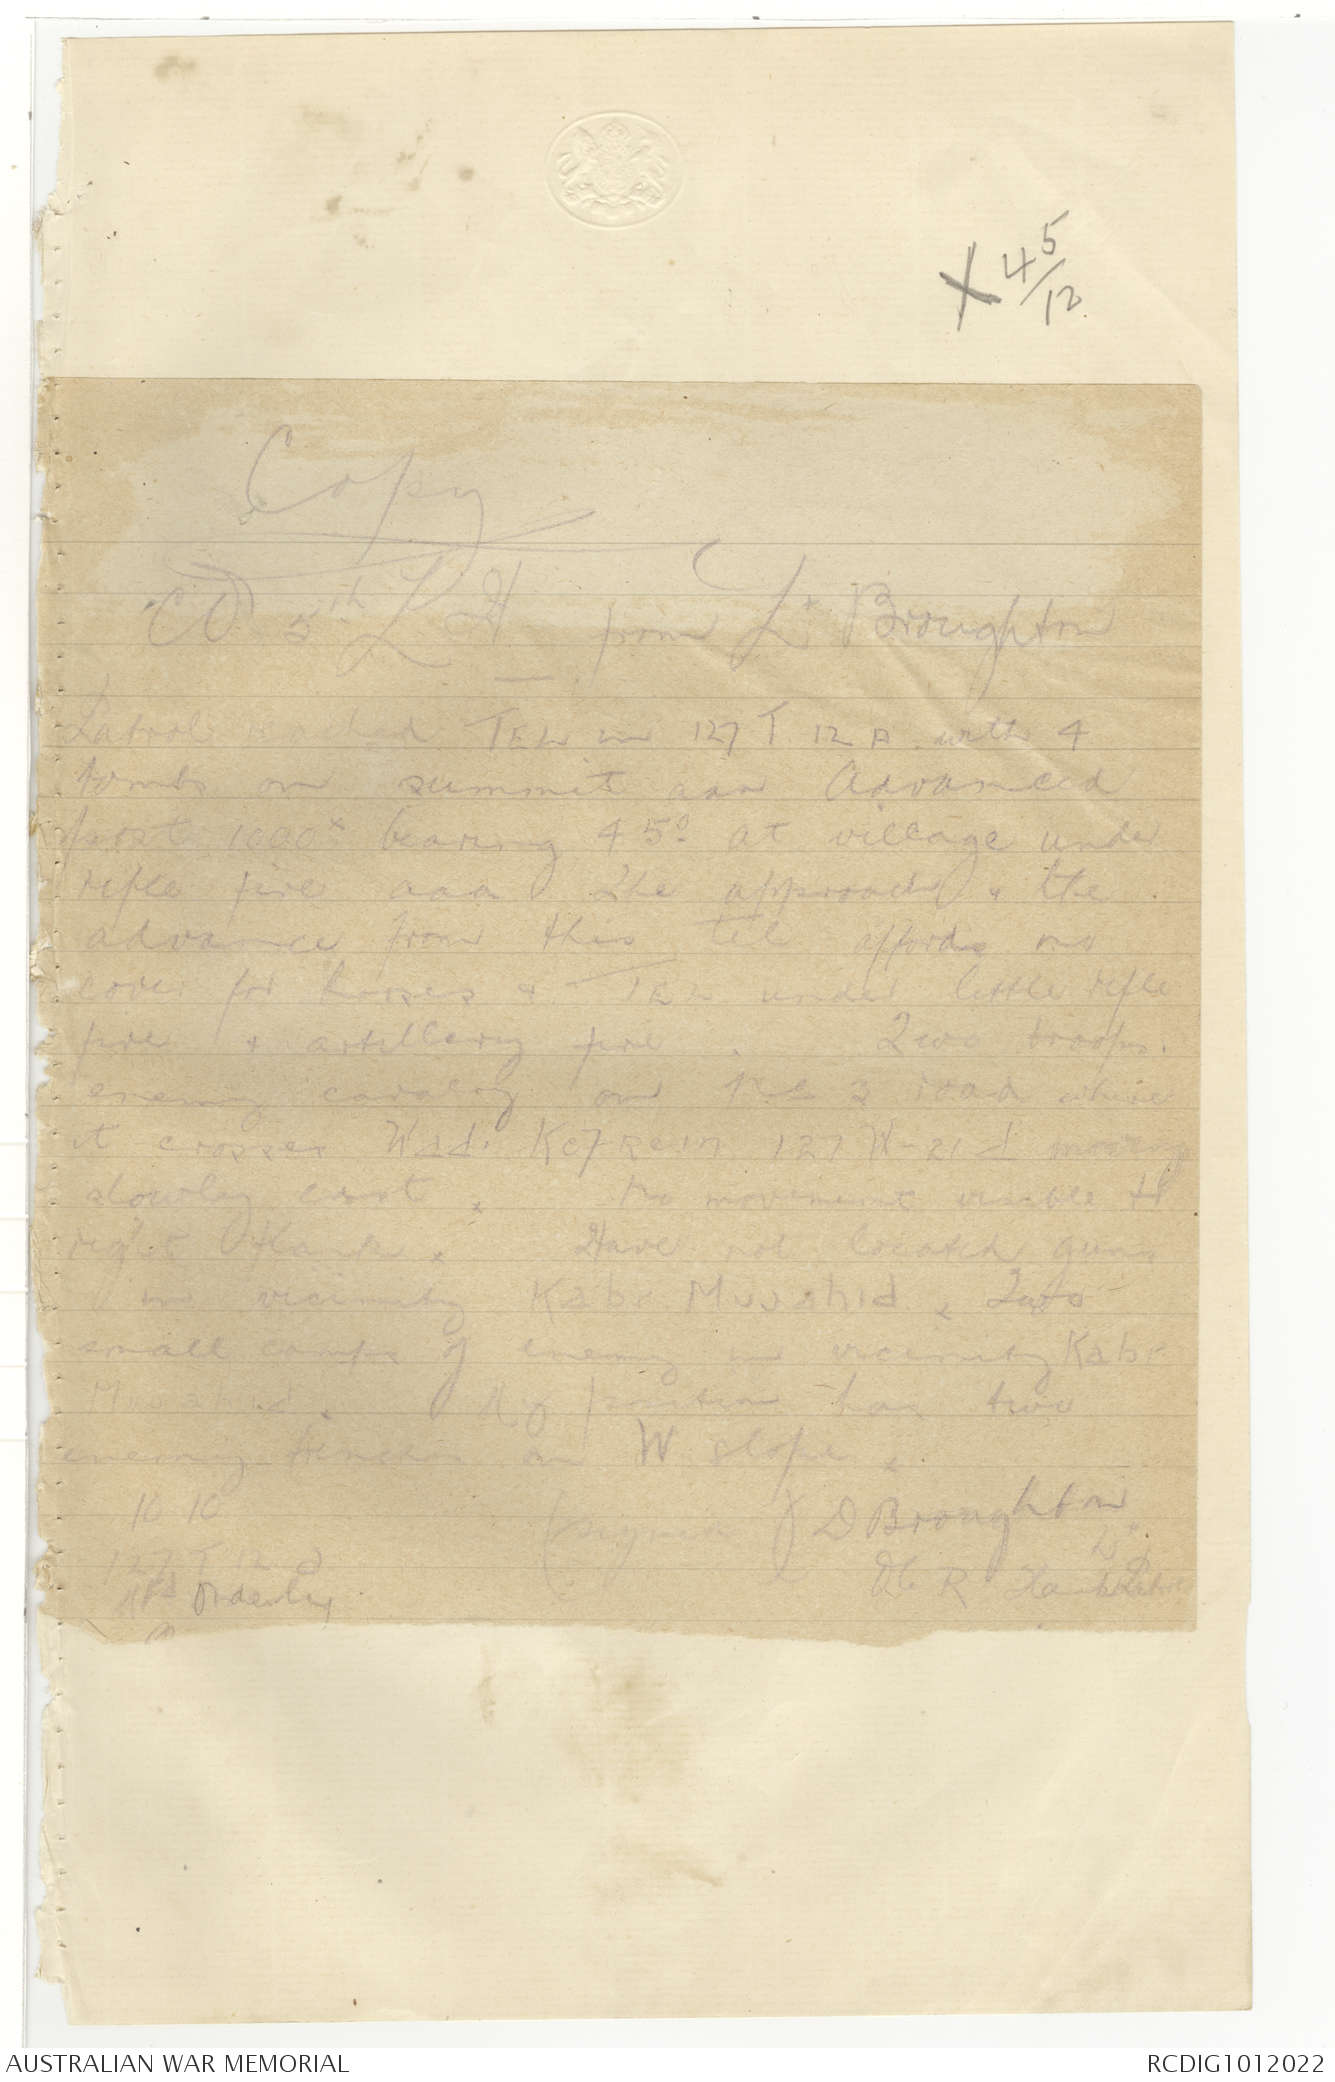 X 4 5/12
Copy
CO 5th L H from Lt Broughton
Patrol reached TEL in 127 T. 12 A with 4
tombs on summit aaa Advanced
posts 1000x bearing 45° at village under
rifle fire aaa The approach & the
advance from this tel affords no
cover for horses & TEL under little rifle
fire & artillery fire. Two troops
enemy cavalry on road where
it crosses Wadi 127 W 21 d moving
slowly east x No movement visible to
right flank x Have not located guns
in vicinity Kabr Mujahid x Two
small camps of enemy in vicinity Kabr
Mujahid. position has two
enemy trenches on W slope x
10 10
(signed J D Broughton
Lt
127 T 12
Orderly
R